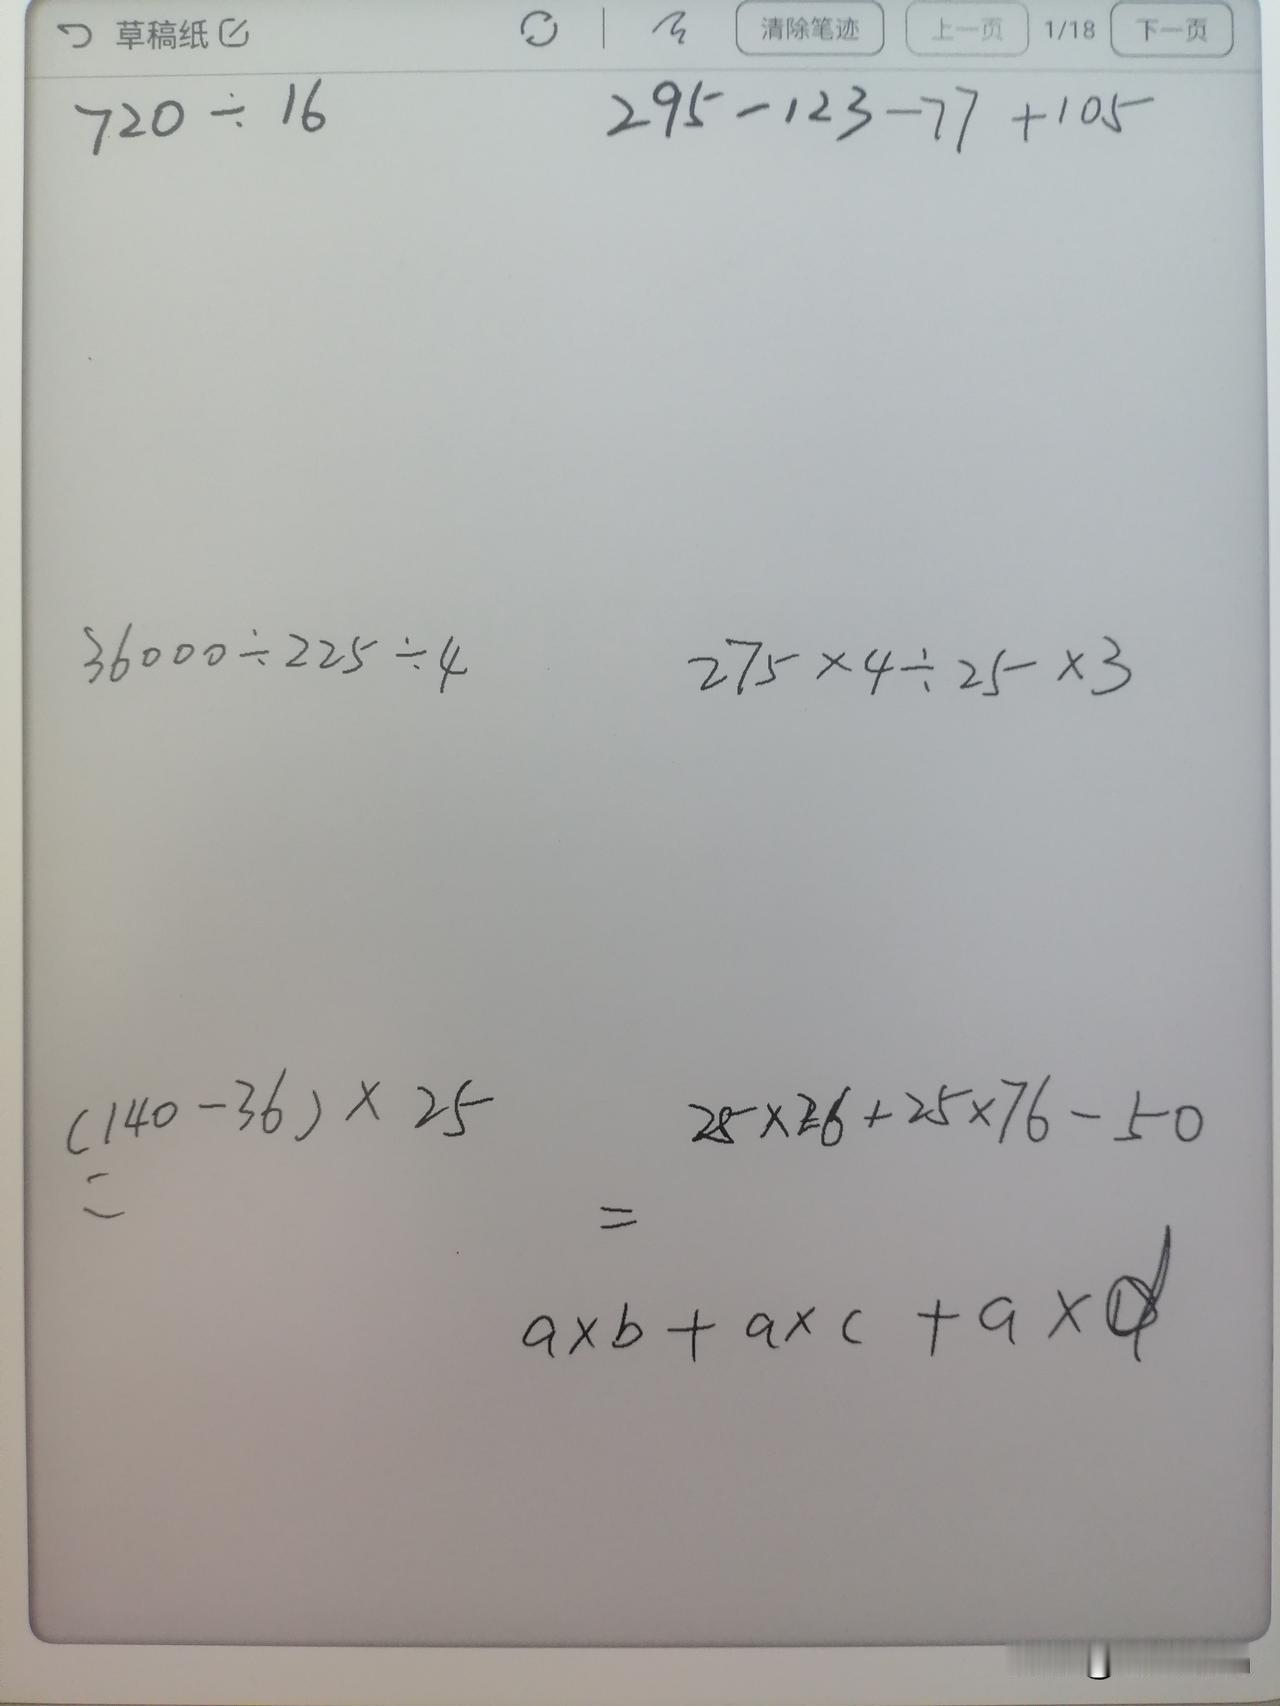 草稿纸 清除笔迹 上一页 1/18 下一页
720÷16 295-123-77+105
36000÷225÷4 275×4÷25×3
(140-36)×25 25×26+25×76-50
= =
a×b+a×c+a×d